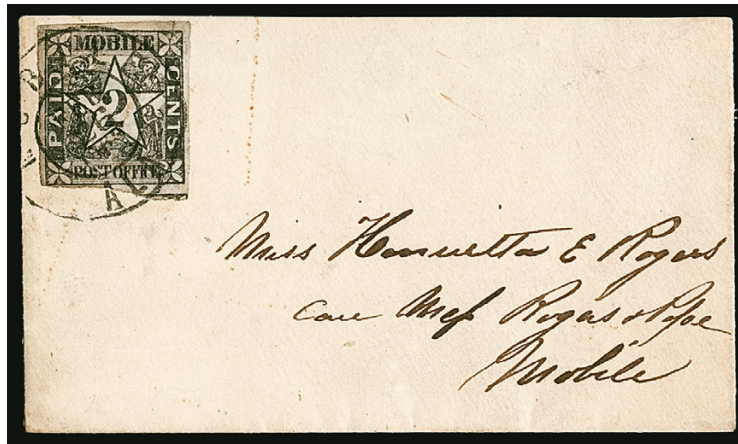 MOBILE
PAID 2 CENTS
POST OFFICE
AL
Miss Henrietta E Rogers
care Mess Rogers & Pope
Mobile